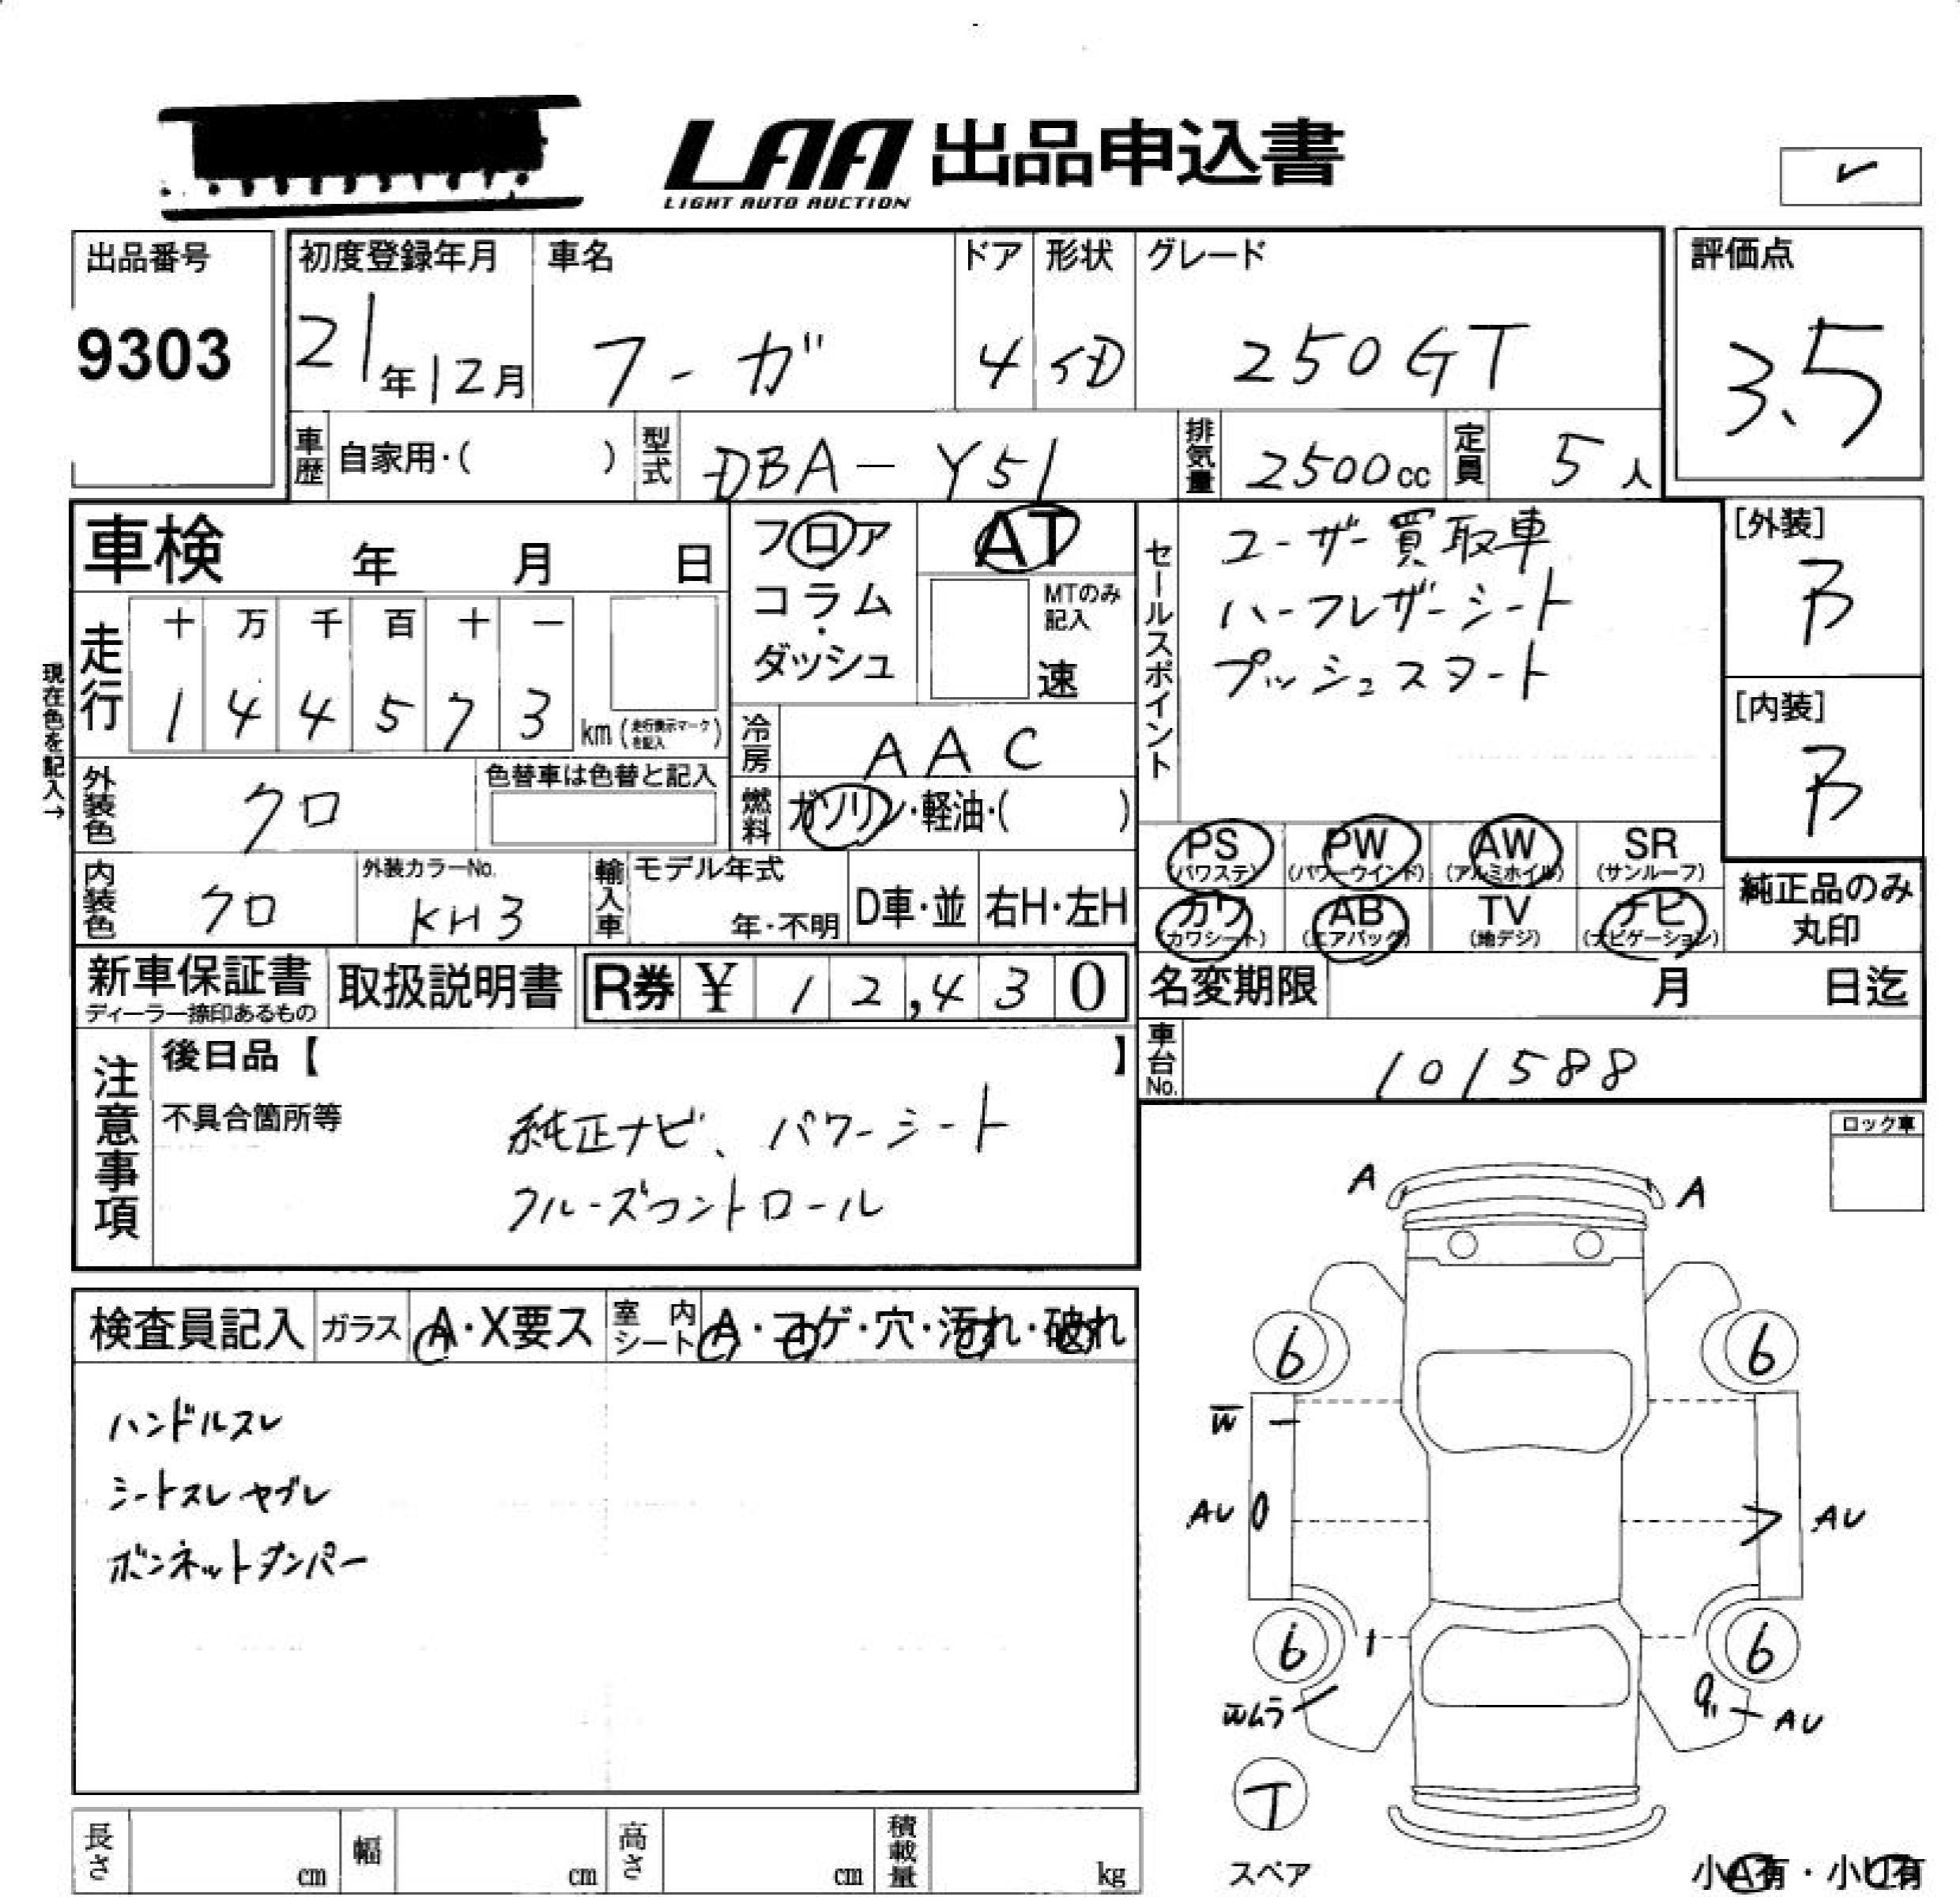 LAA 出品申込書
LIGHT AUTO AUCTION
出品番号
9303
初度登録年月
21年12月
車名
フーガ
ドア
4
形状
SD
グレード
250GT
評価点
3.5
車歴 自家用・( )
型式 DBA-Y51
排気量 2500cc
定員 5人
車検 年 月 日
フロア・コラム・ダッシュ
AT
MTのみ記入
速
セールスポイント
ユーザー買取車
ハーフレザーシート
プッシュスタート
[外装]
B
[内装]
B
現在色を記入→
走行
十 万 千 百 十 一
1 4 4 5 7 3 km (走行表示マークを記入)
冷房 AAC
外装色 クロ
色替車は色替と記入
燃料 ガソリン・軽油・( )
PS (パワステ) PW (パワーウインド) AW (アルミホイル) SR (サンルーフ)
カワ (カワシート) AB (エアバッグ) TV (地デジ) ナビ (ナビゲーション)
純正品のみ丸印
内装色 クロ
外装カラーNo.
KH3
輸入車
モデル年式
年・不明
D車・並
右H・左H
新車保証書
ディーラー捺印あるもの
取扱説明書
R券 ¥ 12,430
名変期限 月 日迄
車台No. 101588
注意事項
後日品【 】
不具合箇所等
純正ナビ、パワーシート
クルーズコントロール
ロック車
検査員記入
ガラス A・X要ス
室内シート A・コゲ・穴・汚れ・破れ
ハンドルスレ
シートスレヤブレ
ボンネットダンパー
A A
6 6
W
AU AU
6 6
Wムラ AU
T
スペア
小A有・小U有
長さ cm 幅 cm 高さ cm 積載量 kg